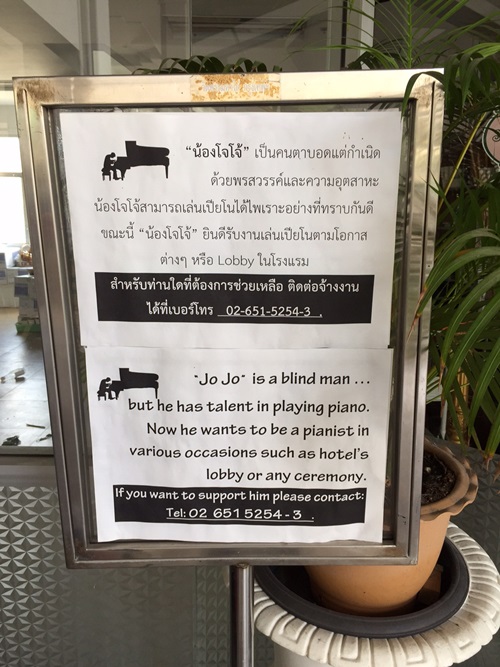 “น้องโจโจ้” เป็นคนตาบอดแต่กำเนิด
ด้วยพรสวรรค์และความอุตสาหะ
น้องโจโจ้สามารถเล่นเปียโนได้ไพเราะอย่างที่ทราบกันดี
ขณะนี้ “น้องโจโจ้” ยินดีรับงานเล่นเปียโนตามโอกาส
ต่างๆ หรือ Lobby ในโรงแรม
สำหรับท่านใดที่ต้องการช่วยเหลือ ติดต่อจ้างงาน
ได้ที่เบอร์โทร 02-651-5254-3 .
"Jo Jo" is a blind man ...
but he has talent in playing piano.
Now he wants to be a pianist in
various occasions such as hotel's
lobby or any ceremony.
If you want to support him please contact:
Tel: 02 651 5254 - 3 .